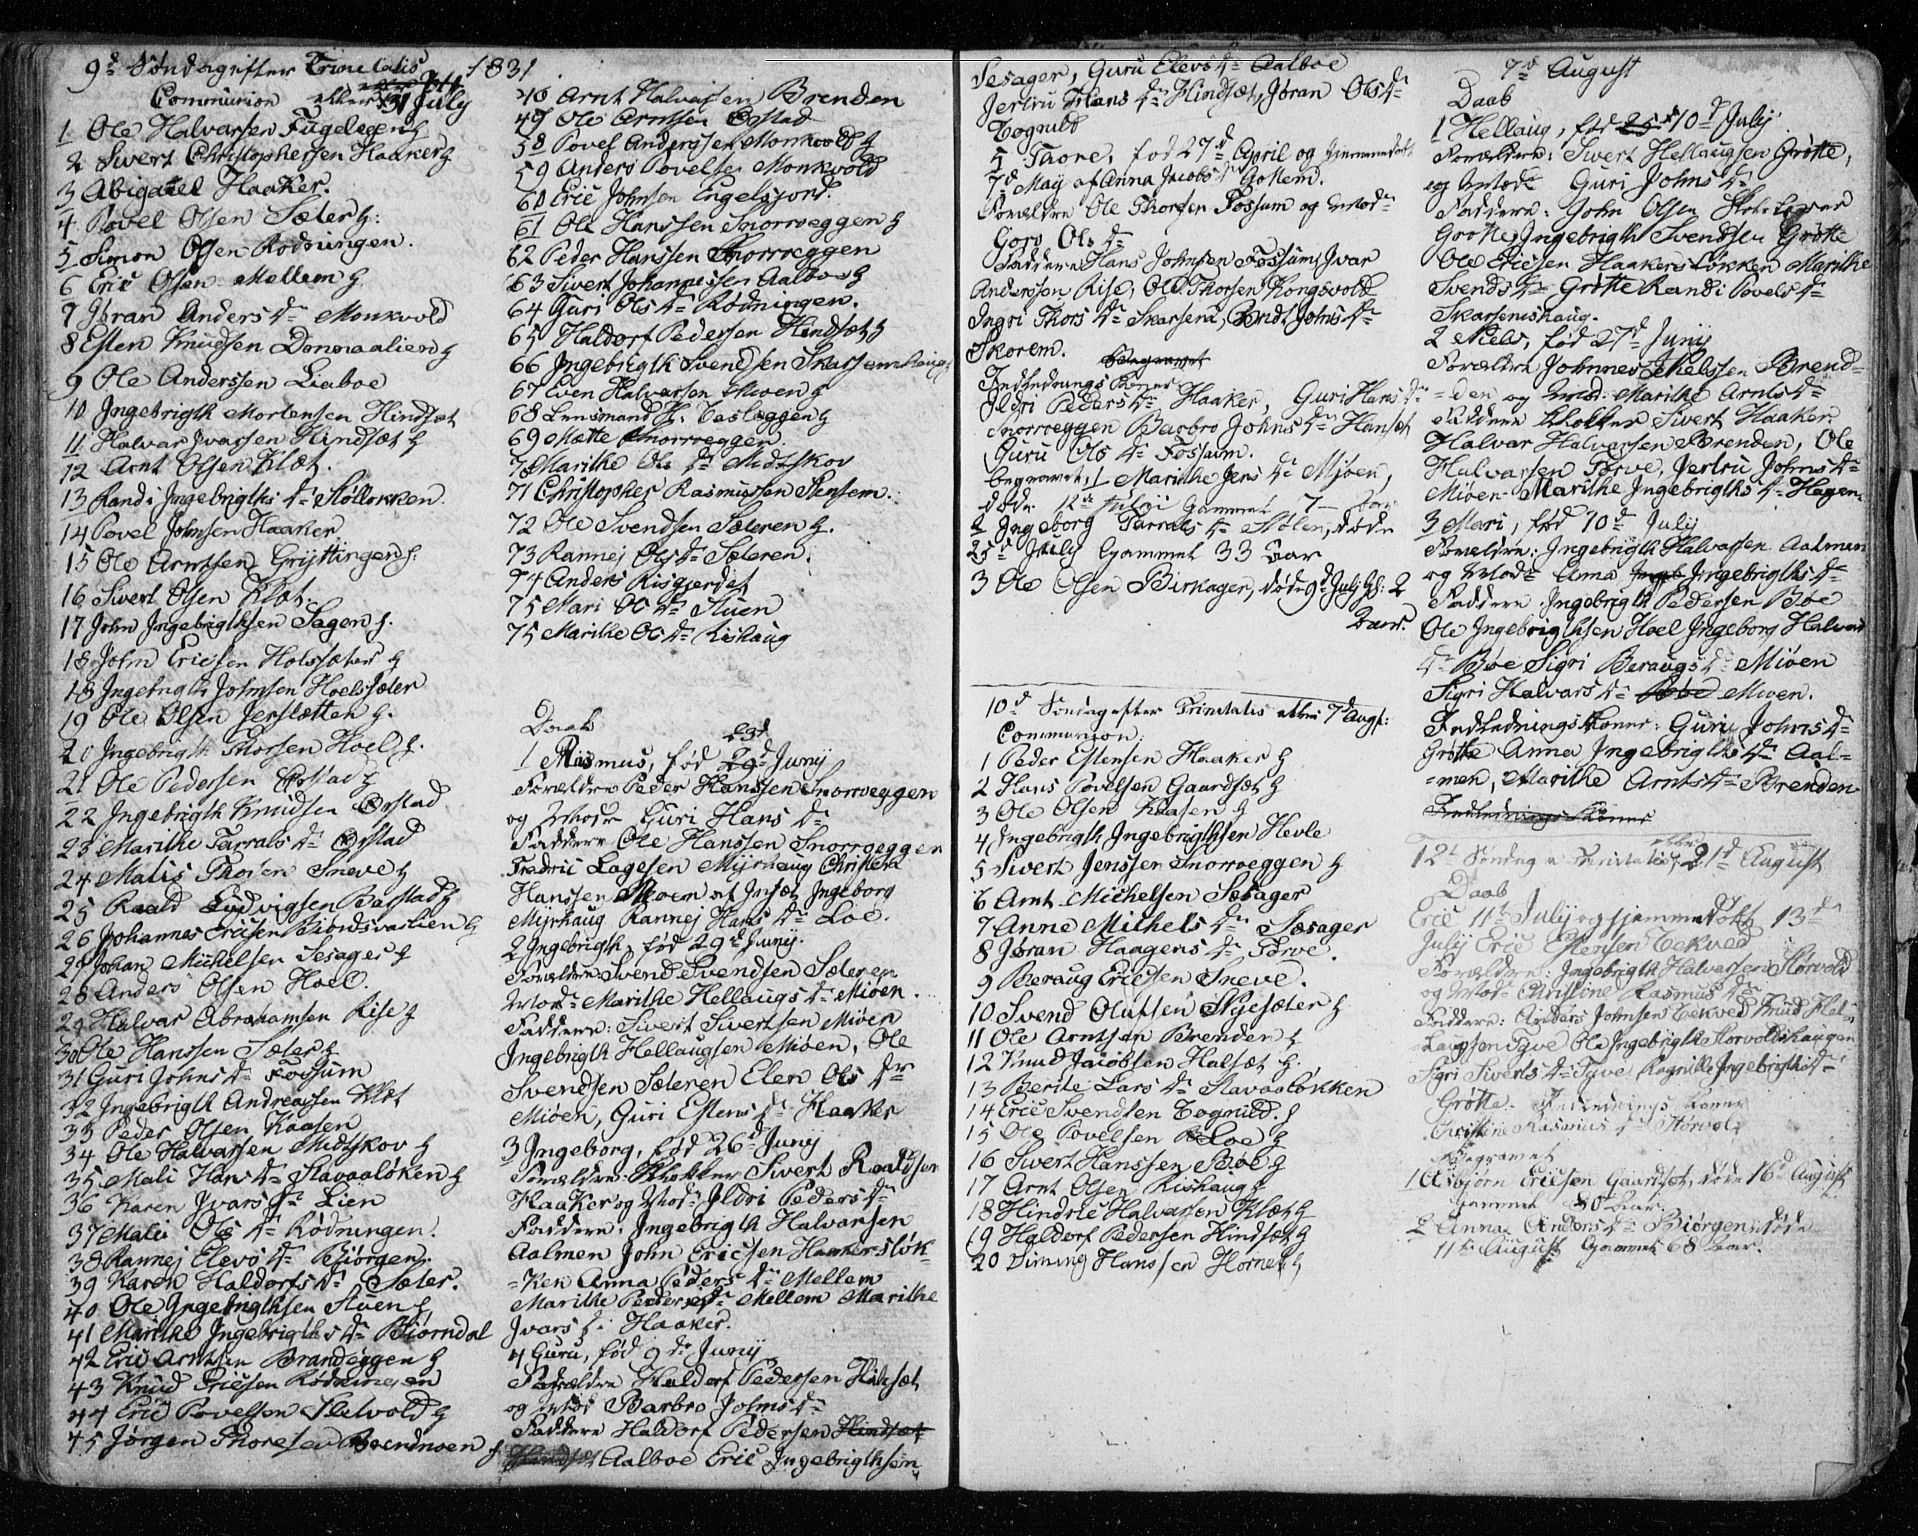 9d Søndag efter Trinitatis 1831
Communion eller 31 July
1 Ole Halvarsen Fugelegen H
2 Swert Christophersen Haaker H
3 Abigael Haaker.
4 Povel Olsen Sæter H:
5 Simon Olsen Rødningen.
6 Eric Olsen Mellem H
7 Jøran Anders Dr Monkvold
8 Esten Knudsen Donmaalien H
9 Ole Anderssen Liaboe
10 Jngebrigth Mortensen Hindsæt
11 Halvar Jvarsen Hindsæt H
12 Arnt Olsen Klæt.
13 Randi Jngebrigths Dr Støllokken
14 Povel Johnsen Haaker
15 Ole Arntsen Gryttingen H.
16 Swert Olsen Klæt.
17 John Jngebrigthsen Hagen H.
18 John Ericsen Holssæter H
18 Jngebrigth Johnsen Hoelssæter
19 Ole Olsen Jerslætten H.
20 Jngebrigth Thorsen Hoel H.
21 Ole Pedersen H
22 Jngebrigth Knudsen Ørstad
23 Marithe Tarrals Dr Ørstad
24 Malis Thoren Sneve H
25 Roald Ludvigsen Barstad H
26 Johannes Ericsen H
27 Johan Michelsen Sesager H
28 Anders Olsen Hoel.
29 Halvar Abrahamsen Rise H
30 Ole Hanssen Sæter H
31 Guri Johns Dr Fossum
32 Jngebrigth Andreassen Klæt
33 Peder Olsen Kaasen
34 Ole Halvarsen Midtskov H
35 Mali Hans Dr Stavaaløken H
36 Karen Jvars Dr Lien
37 Mali Ols Dr Rødningen.
38 Rannej Elevs Dr Bjørgen.
39 Karen Haldorfs Dr Sæter.
40 Ole Jngebrigthsen Stuen H
41 Marithe Jngebrigths Dr Biørndal
42 Eric Arntsen Brandeggen H
43 Knud Ericsen Rødningen
44 Eric Povelsen H
45 Jørgen Thoresen Brendmoen H
48 Arnt Halvarsen Brenden
49 Ole Arntsen Ørstad
58 Povel Anderssen Monkvold H
59 Anders Povelsen Monkvold
60 Eric Johnsen Engelsjord.
61 Ole Hanssen Snorroeggen H
62 Peder Hanssen Snorroeggen
63 Siwert Johannessen Aalboe H
64 Guri Ols Dr Rødningen.
65 Haldorf Pedersen Hindsæt H
66 Jngebrigth Svendsen Skarsemshaug
67 Even Halvarsen Moen H
68 Lensmand H. Vesleggen H
69 Mætte Snorroeggen.
70 Marithe Ols Dr Midtskov
71 Christopher Rasmussen Stensem.
72 Ole Svendsen Sæteren H.
73 Rannej Ols Dr Sæteren.
74 Anders Risgjerdet
75 Mari Ol Dr Stuen
75 Marithe Ols Dr Rishaug
Daab
1 Rasmus, fød 23d Junij
Forældre Peder Hanssen Snorroeggen
og Modr Guri Hans Dr
Faddere Ole Hanssen Snorroeggen
Fredric Lagesen Myrhaug Christen
Hanssen Moen af Jnsæt Jngeborg
Myrhaug Rannej Hans Dr Loe.
2 Jngebrigth, fød 29d Junij.
Forældre Svend Svendsen Sæteren
Modr Marithe Hellaugs Dr Miøen.
Faddere: Sivert Sivertsen Miøen
Jngebrigth Hellaugsen Miøen, Ole
Svendsen Sæteren Elen Ols Dr
Miøen, Guri Estens Dr Haaker
3 Jngeborg, fød 26d Junij
Forældre: Klokker Swert Roaldsen
Haaker og Modr Jldri Peders Dr
Faddere: Jngebrigth Halvarsen
Aalmen John Ericsen Haakersløk-
-ken Anna Peders Dr Mellem
Marithe Peders Dr Mellem Marithe
Jvars Dr Haaker.
4 Guru, fød 9de Junij
Forældre Haldorf Pedersen Hindsæt
og Mod Barbro Johns Dr
Faddere Haldorf Pedersen Hindsæt
Aalboe Eric Jngebrigthsen
Sesager, Guru Elevs Dr Aalboe
Jertru Hans Dr Hindsæt, Jøran Ols Dr
Tognild
5 Thore, fød 27d April og hjemmedøbt
7d May af Anna Jacobs Dr Gottem.
Forældre Ole Thorsen Fossum og Modr
Goro Ols Dr
Faddere Hans Johnsen Fossum, Jvar
Anderssen Rise, Ole Thorsen Kongsvold
Jngri Thors Dr Skarsem, Berit Johns Dr
Skorem.
Begravet
Jndlednings Koner
Jldri Peders Dr Haaker, Guri Hans Dr
Snorroeggen Barbro Johns Dr Hansæt
Guru Ols Dr Fossum.
begravet, 1 Marithe Jens Dr Mjøen,
døde 12te Julii gammel 7 Aar
2 Jngeborg Tarrals Dr Stølen, døde
25d July Gammel 33 Aar
3 Ole Olsen Birkager, døde 9d Julij Gl: 2
Aar.
10d Søndag efter Trinitatis eller 7d Augt:
Communion:
1 Peder Estensen Haaker H
2 Hans Povelsen Gaardsæt H
3 Ole Olsen Kaasen H
4 Jngebrigth Jngebrigthsen Hevle
5 Swert Jenssen Snorroeggen H
6 Arnt Michelsen Sesager
7 Anne Michels Dr Sæsager
8 Jøran Haagens Dr Torve.
9 Beraug Ericsen Sneve.
10 Svend Olufsen Nyesæter H
11 Ole Arntsen Brenden H
12 Knud Jacobsen Halsæt H.
13 Berite Lars Dr Stavaaløkken
14 Eric Svendsen Tognild. H
15 Ole Povelsen Loe H
16 Swert Hanssen Bøe H
17 Arnt Olsen Rishaug H
18 Hindric Halvarsen Klæt H
19 Haldorf Pedersen Hindsæt H
20 Hanssen Hornet H
7d August
Daab
1 Hellaug, fød 10d Julij
Forældre: Swert Hellaugsen Grøtte,
og Modr Guri Johns Dr
Faddere: John Olsen
Grøtte Jngebrigth Svendsen Grøtte
Ole Ericsen Haakersløkken Marithe
Svends Dr Grøtte Randi Povels Dr
Skarsemshaug.
2 Niels, fød 27d Junij
Forældre Johannes Nielssen Brend-
-den og Mod: Marithe Arnts Dr
Faddere Klokker Siwert Haaker
Halvar Halvarsen Brenden, Ole
Halvarsen Torve, Jertru Johns Dr
Miøen Marithe Jngebrigths Dr Hagen
3 Mari, fød 10d July
Forældre: Jngebrigth Halvarsen Aalmen
og Modr Anna Jngebrigths Dr
Faddere: Jngebrigth Pedersen Bøe
Ole Jngebrigthsen Hoel Jngeborg Halvars
Dr Bøe Sigri Beraugs Dr Miøen
Sigri Halvars Dr Moen.
Jndledningskoner: Guri Johns Dr
Grøtte Anna Jngebrigths Dr Aal-
-men, Marithe Arnts Dr Brenden
Jndlednings Koner
12te Søndag e Trinitatis eller 21d August
Daab
Eric 11te July og hjemmedøbt 13d
July Eric Estensen Tekved
Forældre: Jngebrigth Halvarsen Storvold
og Modr Christine Rasmus Dr
Faddere: Anders Johnsen Tekved Knud Hel-
-laugsen Tyve Ole Jngebrigth Storvoldshaugen
Sigri Siverts Dr Tyve Ragnild Jngebrigths Dr
Grøtte. Jndlednings Koner
Christine Rasmus Dr Storvold
Begravet
1 Asbjørn Ericsen Gaardsæt, døde 16d August
gammel 80 Aar.
2 Anna Anders Dr Biørgen døde
11te August Gammel 68 Aar.